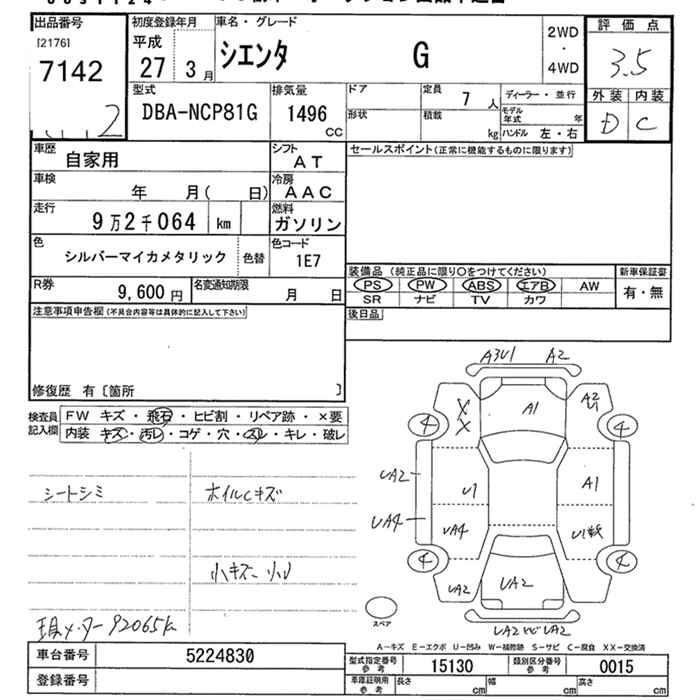 出品番号 初度登録年月 車名・グレード 2WD 評価点
[2176] 平成 シエンタ G ・ 3.5
7142 27 3月 4WD
型式 排気量 ドア 定員 7人 ディーラー・並行 外装 内装
DBA-NCP81G 1496 CC 形状 積載 kg モデル年式 年 D C
2 ハンドル 左・右
車歴 自家用 シフト AT セールスポイント(正常に機能するものに限ります)
車検 年 月( 日) 冷房 AAC
走行 9万2千064 km 燃料 ガソリン
色 シルバーマイカメタリック 色替 色コード 1E7
装備品 (純正品に限り○をつけてください) 新車保証書
R券 9,600円 名変通知期限 月 日 PS PW ABS エアB AW 有・無
SR ナビ TV カワ
注意事項申告欄(不具合内容等は具体的に記入して下さい) 後日品
修復歴 有〔箇所 〕
検査員記入欄 FW キズ・飛石・ヒビ割・リペア跡・×要
内装 キズ・汚レ・コゲ・穴・スレ・キレ・破レ
シートシミ ホイルCキズ
小キズ 小U
現メーター92065k
A3U1 A2
X X A1 A2 U1
4 4
UA2 U1 A1
UA4 UA4 U1
4 4
UA2 UA2
スペア UA2 ヒビ UA2
A-キズ E-エクボ U-凹み W-補修跡 S-サビ C-腐食 XX-交換済
車台番号 5224830 型式指定番号 参考 15130 類別区分番号 参考 0015
登録番号 車庫証明用 参考 長さ cm 幅 cm 高さ cm